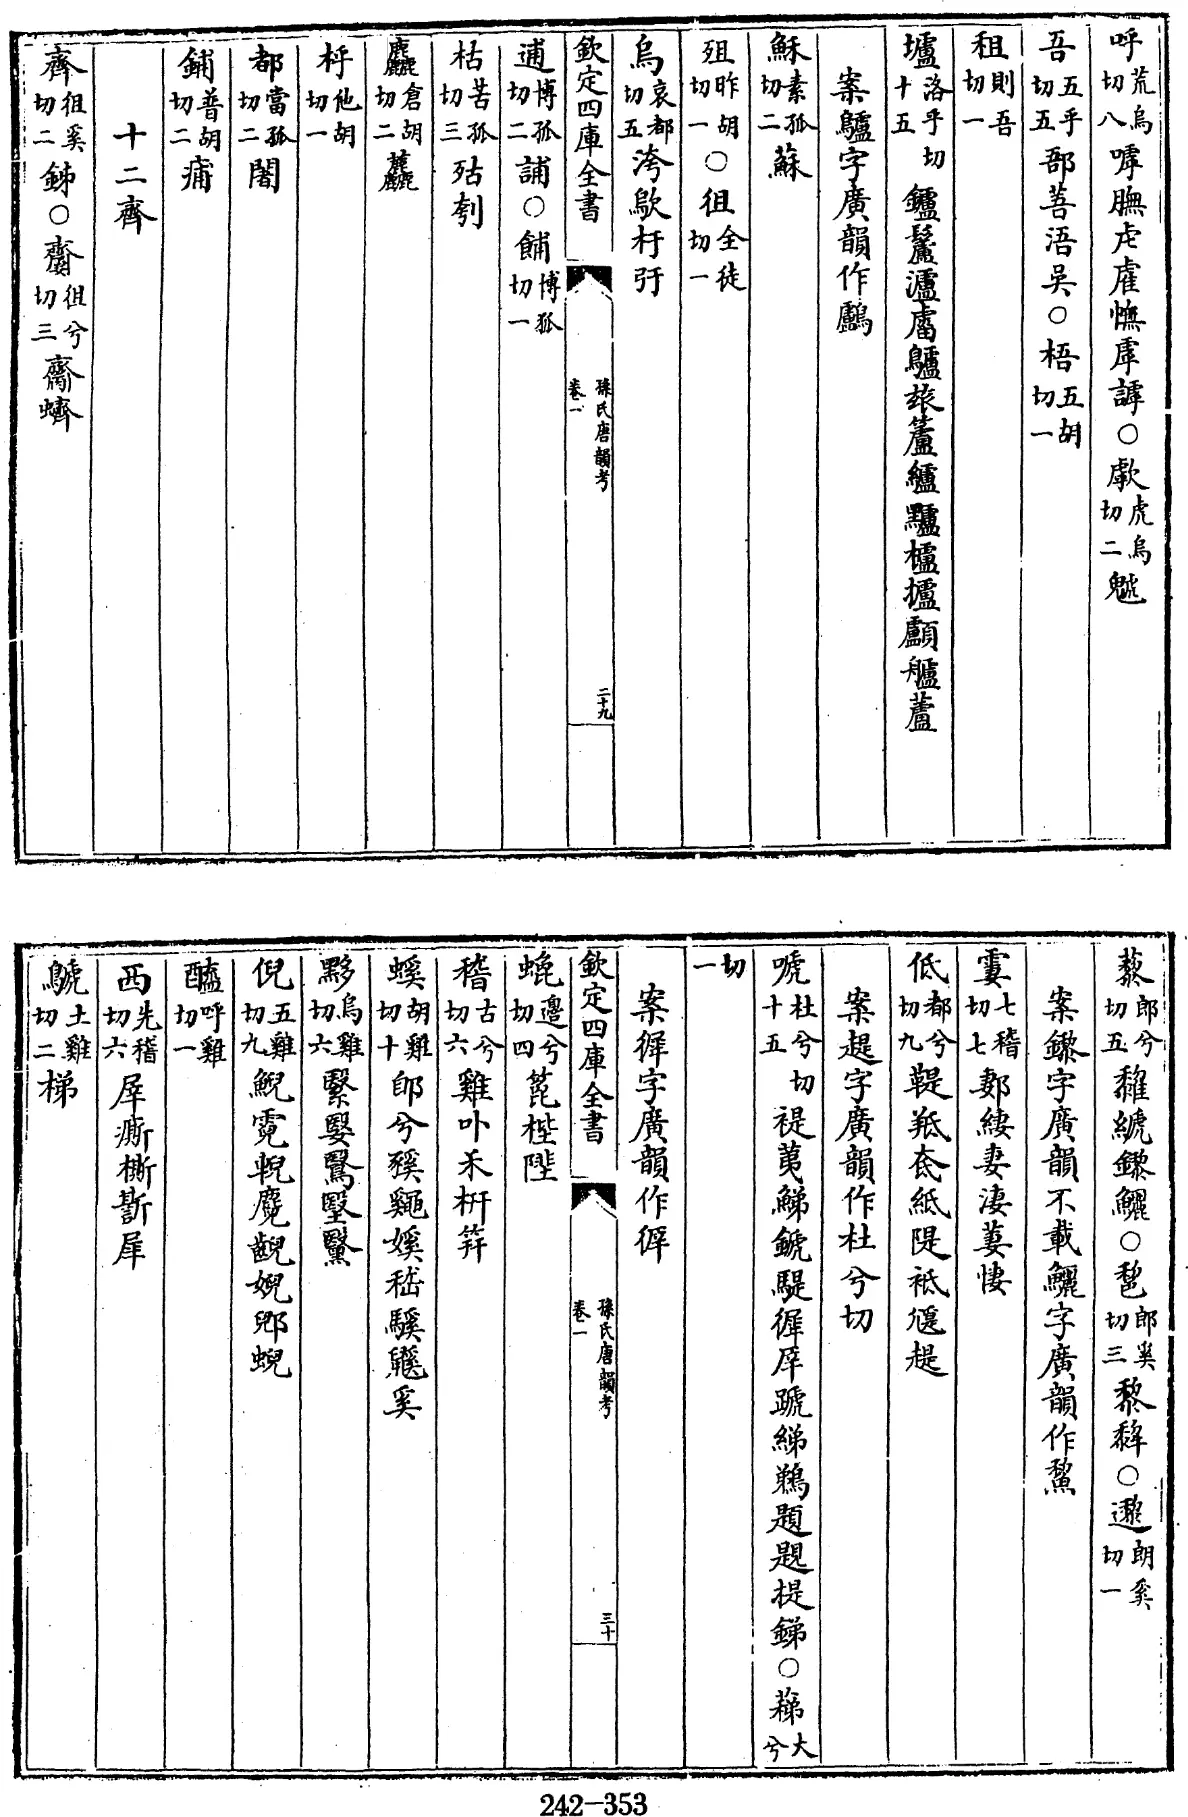 呼荒烏切八嘑膴虍雐憮虖謼○歑虎烏切二䰧
吾五乎切五郚菩浯吳○梧五胡切一
租則吾切一
壚洛乎切十五鑪鬛瀘䖙鸕旅籚纑黸櫨攎顱艫蘆
案鸕字廣韻作鸕
穌素孤切二蘇
殂昨胡切一○徂全徒切一
烏哀都切五洿歍杇㱧
欽定四庫全書
孫氏唐韻考
卷一
二十九
逋博孤切二誧○餔博狐切一
枯苦孤切三殆刳
麤倉胡切二麤
梌他胡切一
都當孤切二闍
鋪普胡切二痡
十二齊
齊徂奚切二䶒○齌徂兮切三齋蠐
藜郎兮切五䵩䋥鑗鱺○䅻郎奚切三黎犂○邌朗奚切一
案鑗字廣韻不載鱺字廣韻作鯬
霋七稽切七郪緀妻淒萋悽
低都兮切九鞮羝奃紙隄袛㣢趧
案趧字廣韻作杜兮切
嗁杜兮切十五禔荑鮷鷈騠徲厗蹏綈鵜題題提銻○䔑大兮
切一
案徲字廣韻作徲
欽定四庫全書
孫氏唐韻考
卷一
三十
螕邊兮切四篦梐陛
稽古兮切六雞卟禾枅筓
螇胡雞切十郋兮豯鼷嫨嵇騱㜎奚
黟烏雞切六緊嫛鷖堅黳
倪五雞切九鯢霓輗麑齯婗郳蜺
醯呼雞切一
西先稽切六犀澌㯕䜁屖
鷈土雞切二梯
242-353